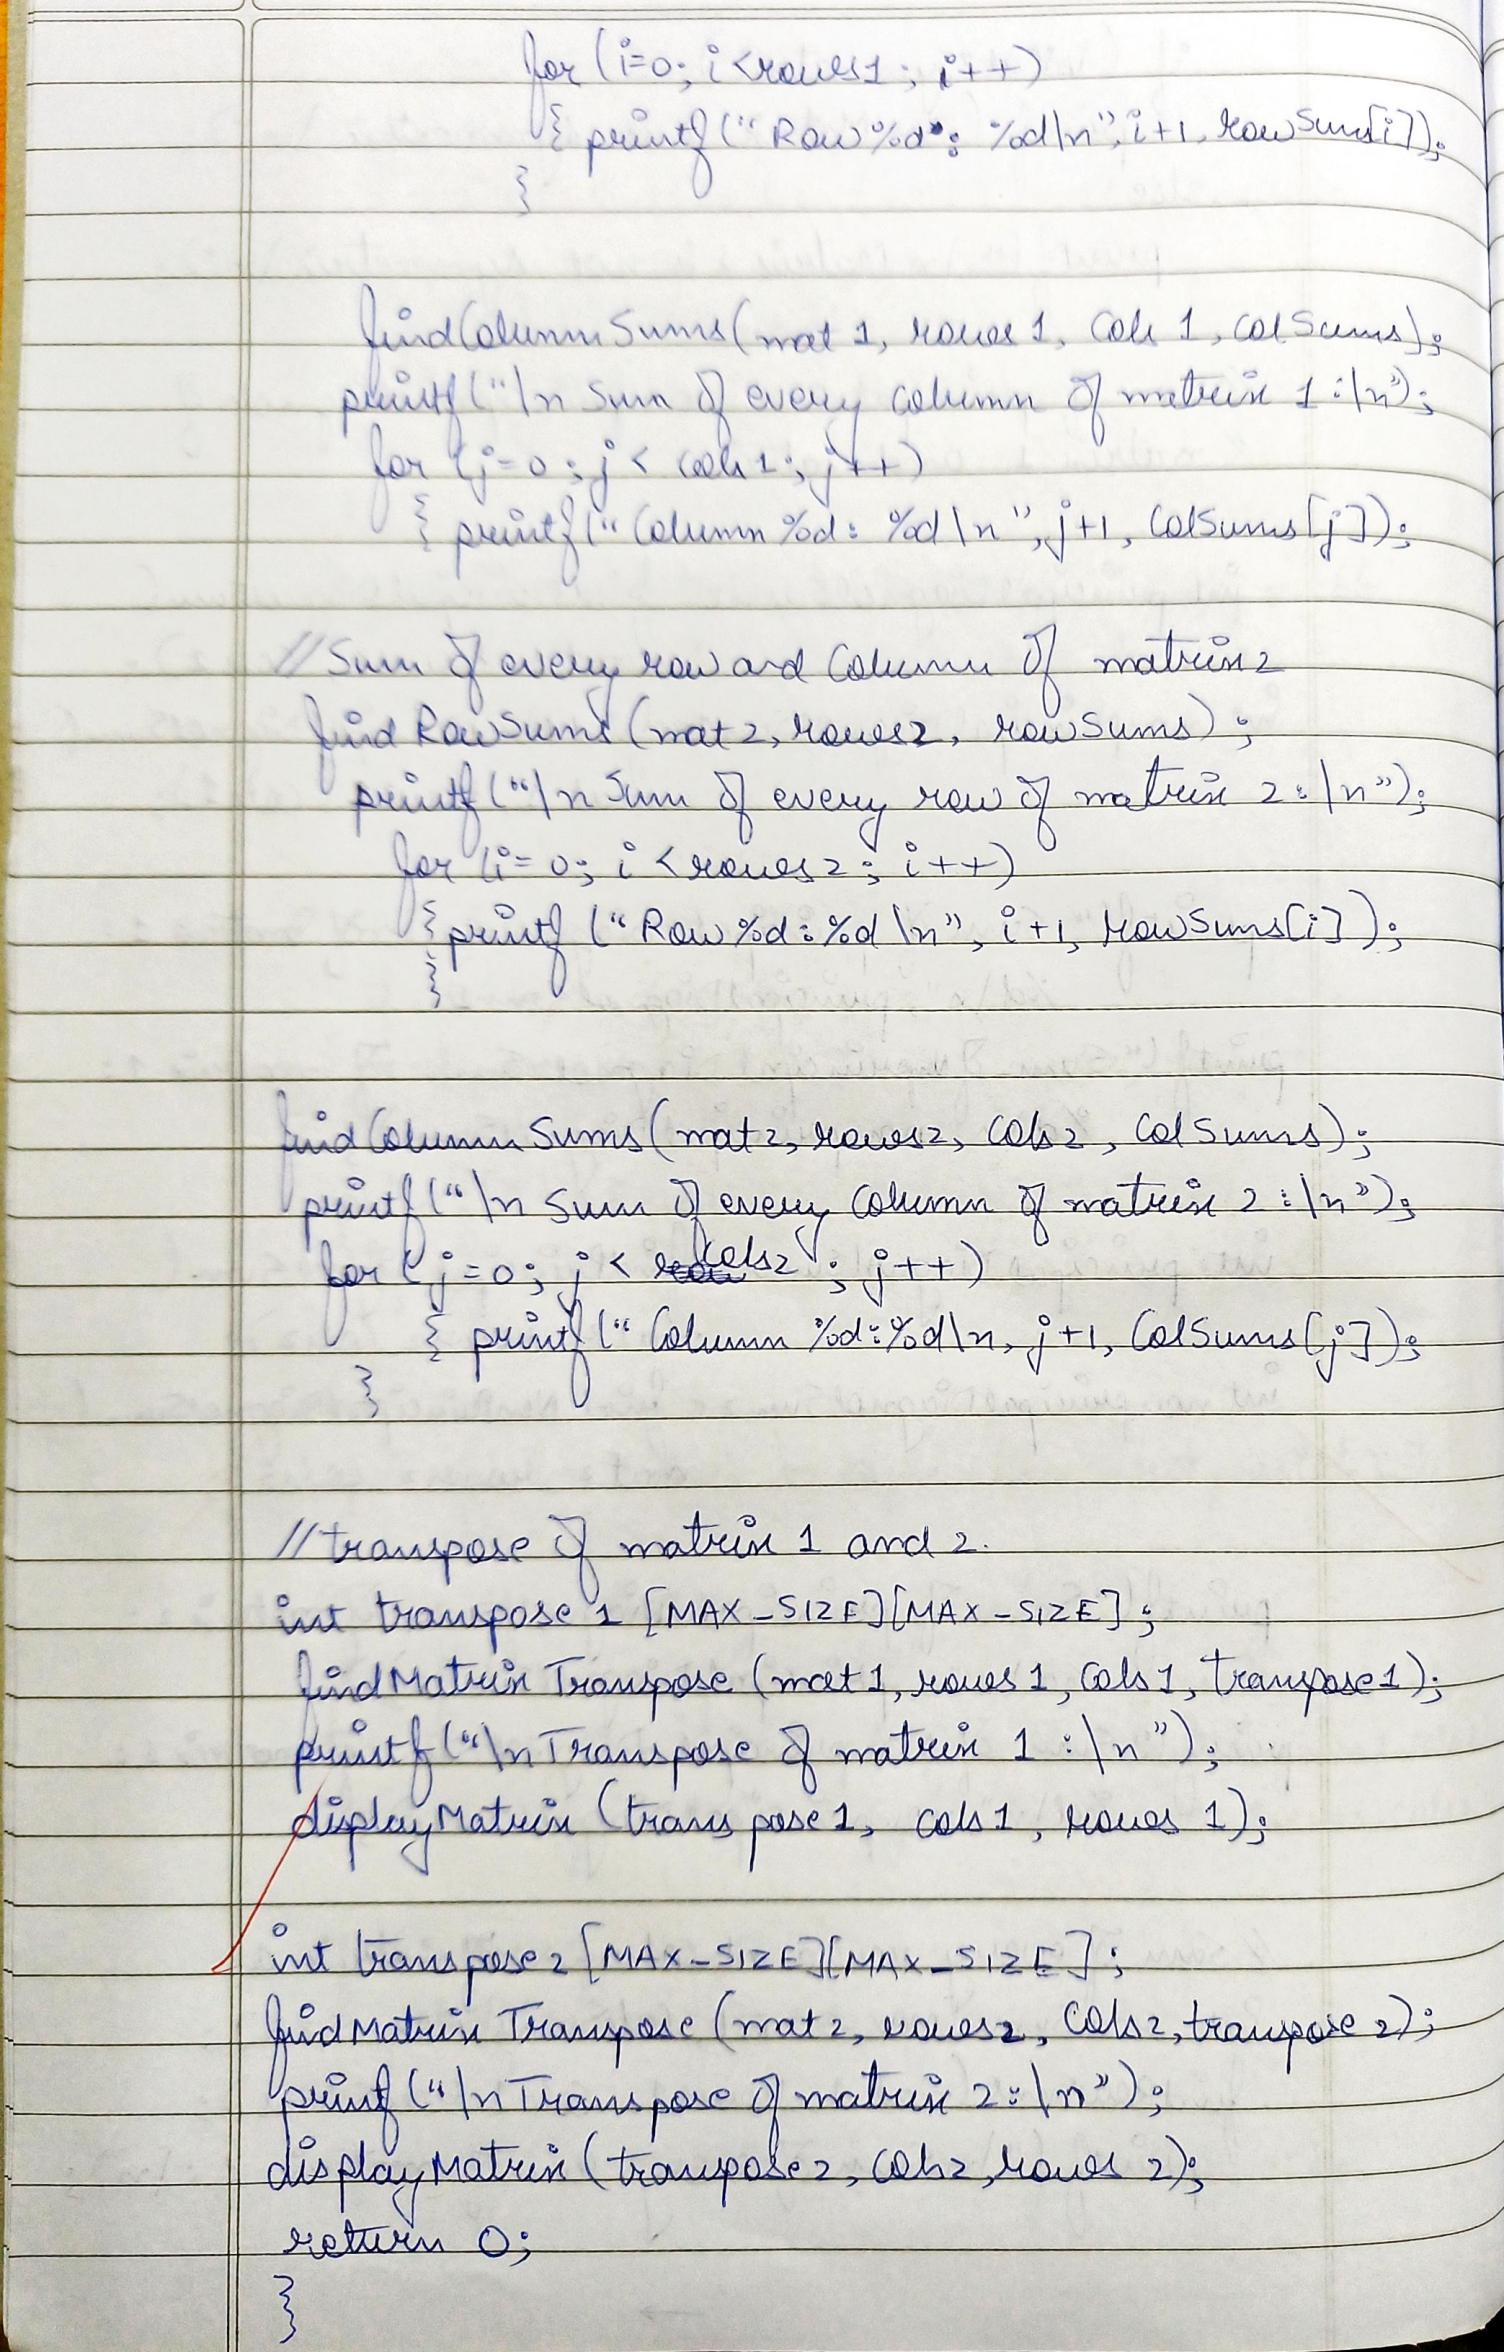 for (i=0; i<rows1; i++)
{ printf("Row%d: %d\n", i+1, rowSums[i]);
}
findColumnSums(mat1, rows1, cols1, colSums);
printf("\n Sum of every column of matrix 1:\n");
for (j=0; j< cols1; j++)
{ printf("Column %d: %d\n", j+1, ColSums[j]);
//Sum of every row and Column of matrix2
findRowSums(mat2, rows2, rowSums);
printf("\n Sum of every row of matrix 2:\n");
for (i=0; i<rows2; i++)
{printf ("Row %d:%d\n", i+1, rowSums[i]);
}
findColumnSums(mat2, rows2, Cols2, ColSums);
printf("\n Sum of every Column of matrix 2:\n");
for (j=0; j< cols2; j++)
{ printf("Column %d:%d\n, j+1, ColSums[j]);
}
//transpose of matrix 1 and 2.
int transpose1 [MAX_SIZE][MAX_SIZE];
findMatrixTranspose (mat1, rows1, Cols1, transpose1);
printf("\nTranspose of matrix 1:\n");
displayMatrix (transpose1, cols1, rows1);
int transpose2 [MAX_SIZE][MAX_SIZE];
findMatrixTranspose (mat2, rows2, Cols2, transpose2);
printf("\nTranspose of matrix 2:\n");
displayMatrix (transpose2, Cols2, rows2);
return 0;
}